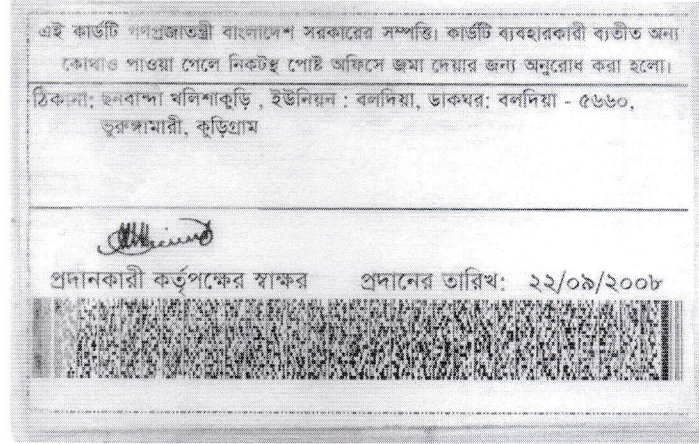 এই কার্ডটি গণপ্রজাতন্ত্রী বাংলাদেশ সরকারের সম্পত্তি। কার্ডটি ব্যবহারকারী ব্যতীত অন্য
কোথাও পাওয়া গেলে নিকটস্থ পোষ্ট অফিসে জমা দেয়ার জন্য অনুরোধ করা হলো।
ঠিকানা: ছনবান্দা খলিশাকুড়ি , ইউনিয়ন : বলদিয়া, ডাকঘর: বলদিয়া - ৫৬৬০,
ভুরুঙ্গামারী, কুড়িগ্রাম
প্রদানকারী কর্তৃপক্ষের স্বাক্ষর প্রদানের তারিখ: ২২/০৯/২০০৮